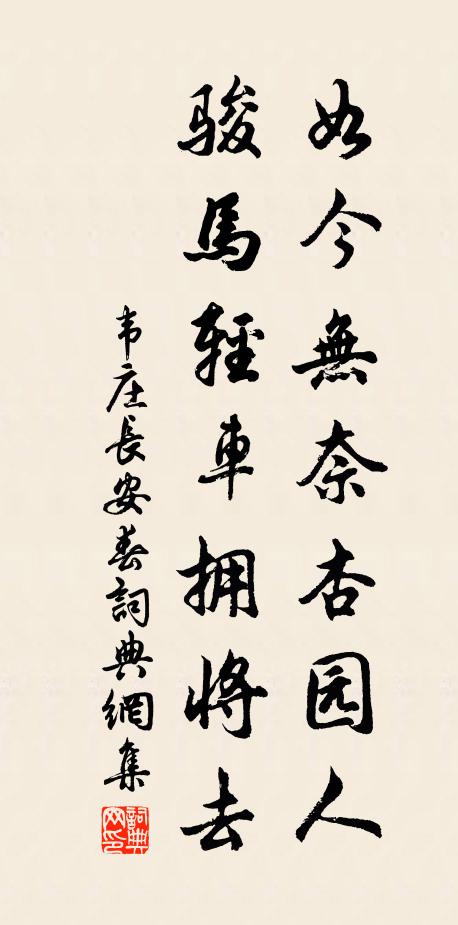 如今無奈杏园人
骏馬輕車拥將去
韦庄長安春詞典網集
詞典网印